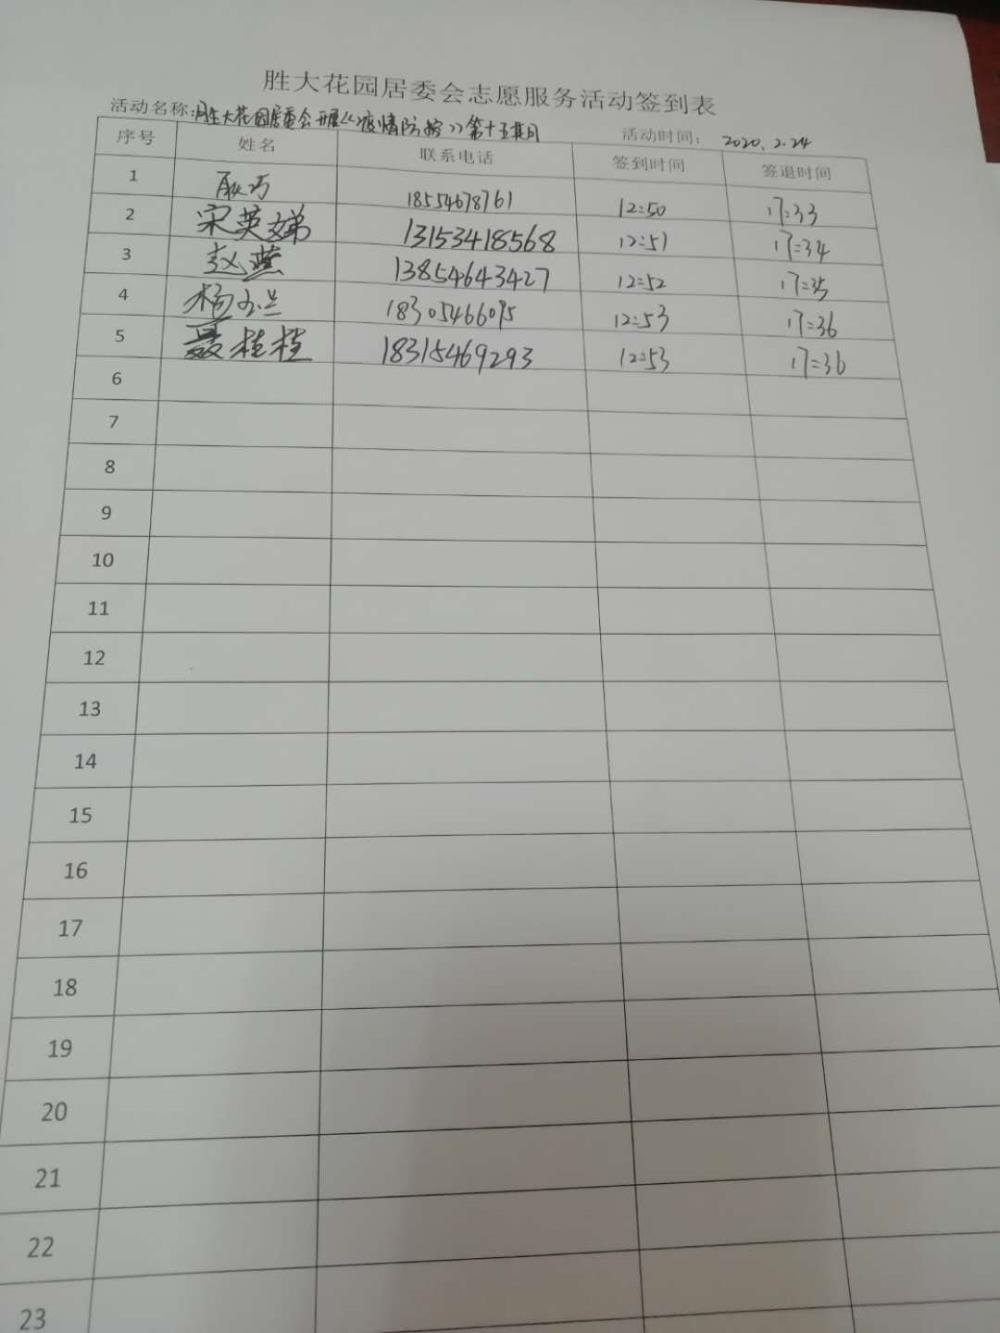 胜大花园居委会志愿服务活动签到表
活动名称:胜大花园居委会开展《疫情防控》第十五期 活动时间: 2020.2.24
序号 姓名 联系电话 签到时间 签退时间
1 耿巧 18554678761 12:50 17:33
2 宋英娣 13153418568 12:51 17:34
3 赵燕 13854643427 12:52 17:35
4 杨 兰 18305466095 12:53 17:36
5 聂桂桂 18315469293 12:53 17:36
6
7
8
9
10
11
12
13
14
15
16
17
18
19
20
21
22
23